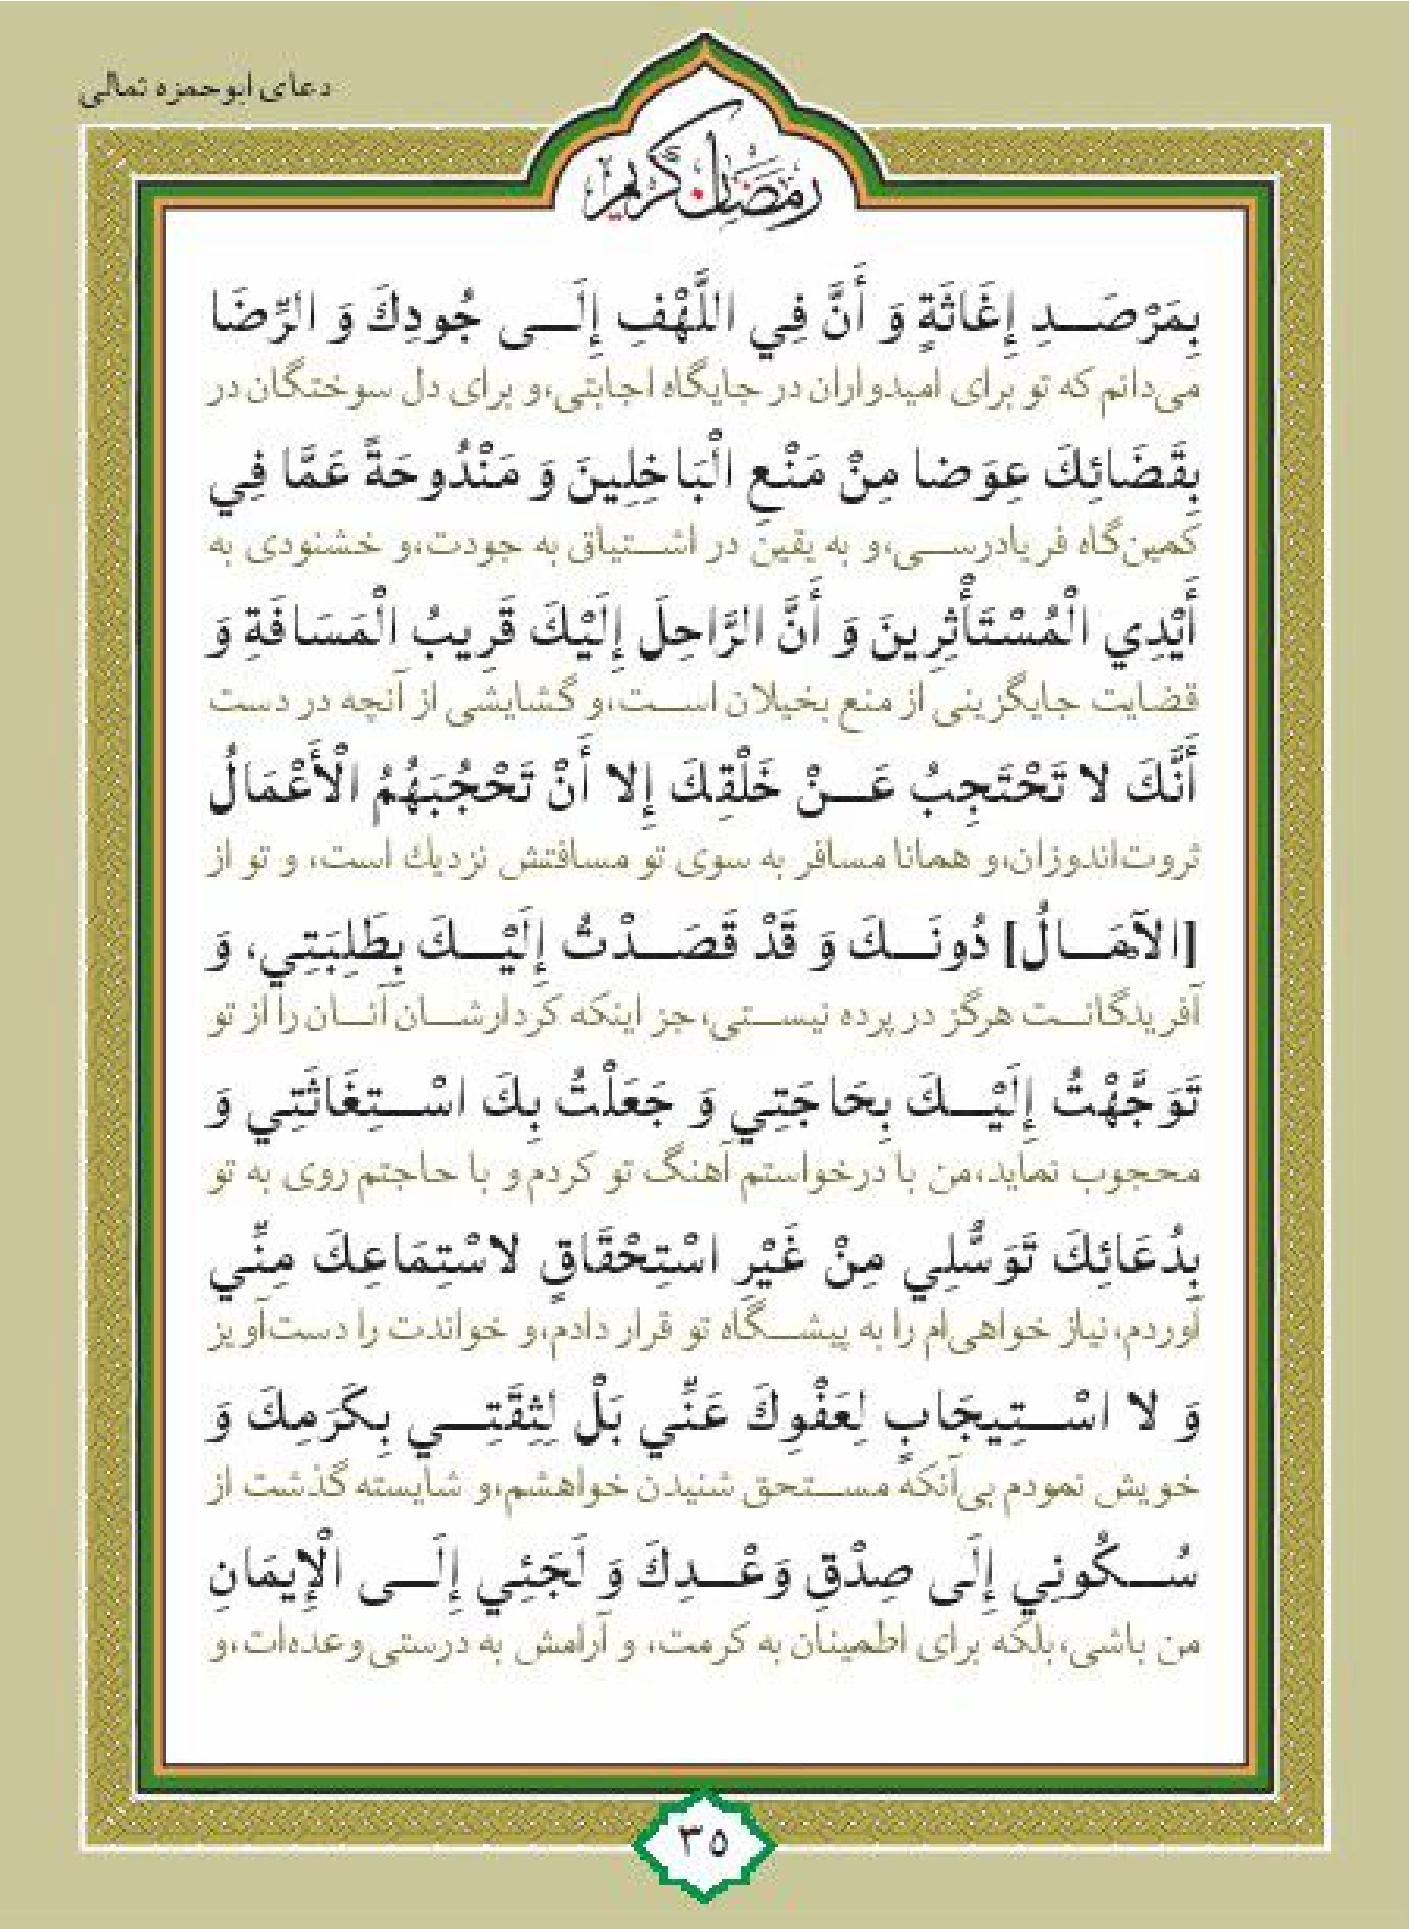 دعای ابوحمزه ثمالی
رمضان کریم
بِمَرْصَدِ إِغَاثَةٍ وَ أَنَّ فِي اللَّهْفِ إِلَى جُودِكَ وَ الرِّضَا
می‌دانم که تو برای امیدواران در جایگاه اجابتی،و برای دل سوختگان در
بِقَضَائِكَ عِوَضا مِنْ مَنْعِ الْبَاخِلِينَ وَ مَنْدُوحَةً عَمَّا فِي
کمین‌گاه فریادرسی،و به یقین در اشتیاق به جودت،و خشنودی به
أَيْدِي الْمُسْتَأْثِرِينَ وَ أَنَّ الرَّاحِلَ إِلَيْكَ قَرِيبُ الْمَسَافَةِ وَ
قضایت جایگزینی از منع بخیلان است،و گشایشی از آنچه در دست
أَنَّكَ لا تَحْتَجِبُ عَنْ خَلْقِكَ إِلا أَنْ تَحْجُبَهُمُ الْأَعْمَالُ
ثروت‌اندوزان،و همانا مسافر به سوی تو مسافتش نزدیك است، و تو از
[الآمَالُ] دُونَكَ وَ قَدْ قَصَدْتُ إِلَيْكَ بِطَلِبَتِي، وَ
آفریدگانت هرگز در پرده نیستی،جز اینکه کردارشان آنان را از تو
تَوَجَّهْتُ إِلَيْكَ بِحَاجَتِي وَ جَعَلْتُ بِكَ اسْتِغَاثَتِي وَ
محجوب نماید،من با درخواستم آهنگ تو کردم و با حاجتم روی به تو
بِدُعَائِكَ تَوَسُّلِي مِنْ غَيْرِ اسْتِحْقَاقٍ لاسْتِمَاعِكَ مِنِّي
آوردم،نیاز خواهی‌ام را به پیشگاه تو قرار دادم،و خواندت را دست‌آویز
وَ لا اسْتِيجَابٍ لِعَفْوِكَ عَنِّي بَلْ لِثِقَتِي بِكَرَمِكَ وَ
خویش نمودم بی‌آنکه مستحق شنیدن خواهشم،و شایسته گذشت از
سُكُونِي إِلَى صِدْقِ وَعْدِكَ وَ لَجَئِي إِلَى الْإِيمَانِ
من باشی،بلکه برای اطمینان به کرمت، و آرامش به درستی وعده‌ات،و
۳۵